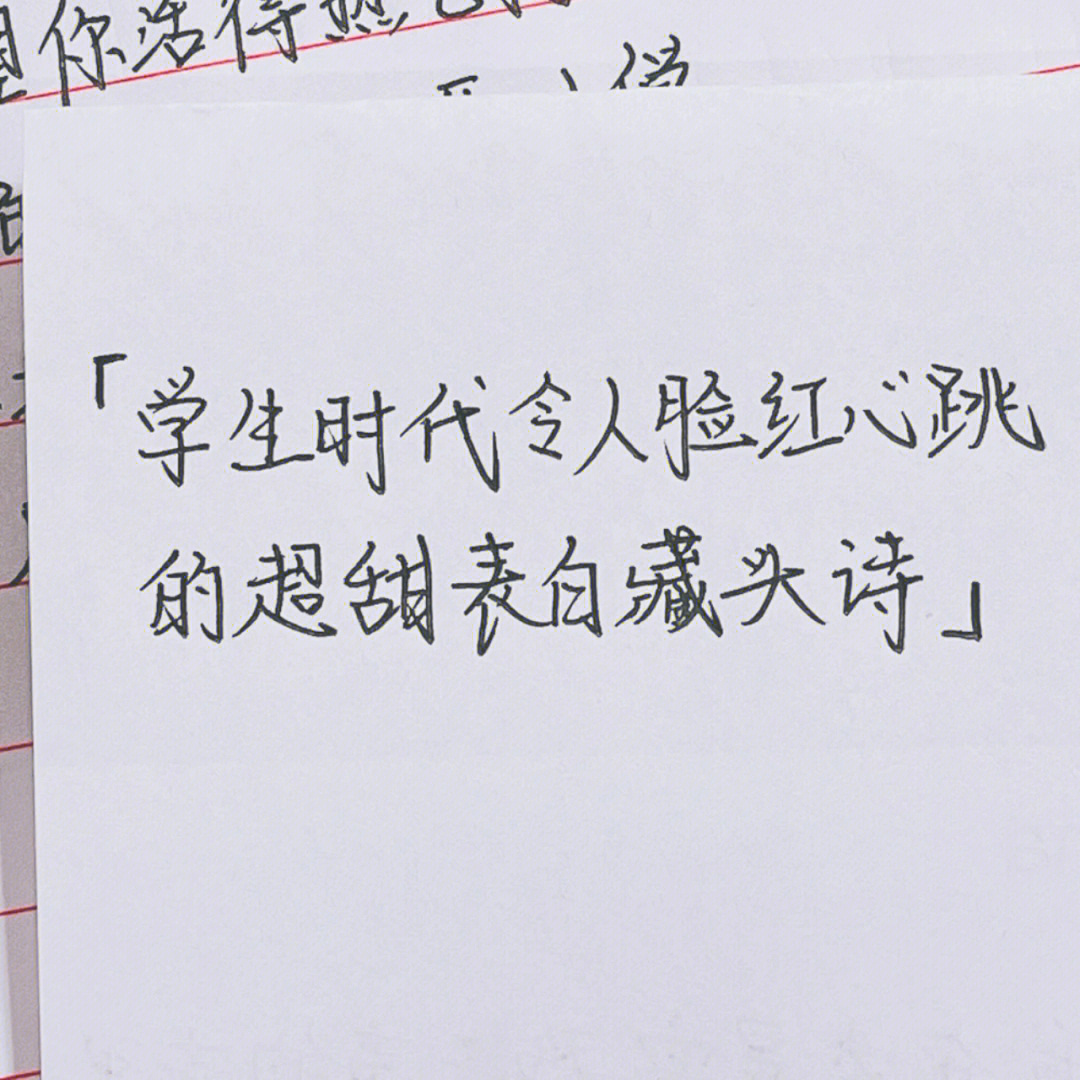 你活得热
「学生时代令人脸红心跳
的超甜表白藏头诗」